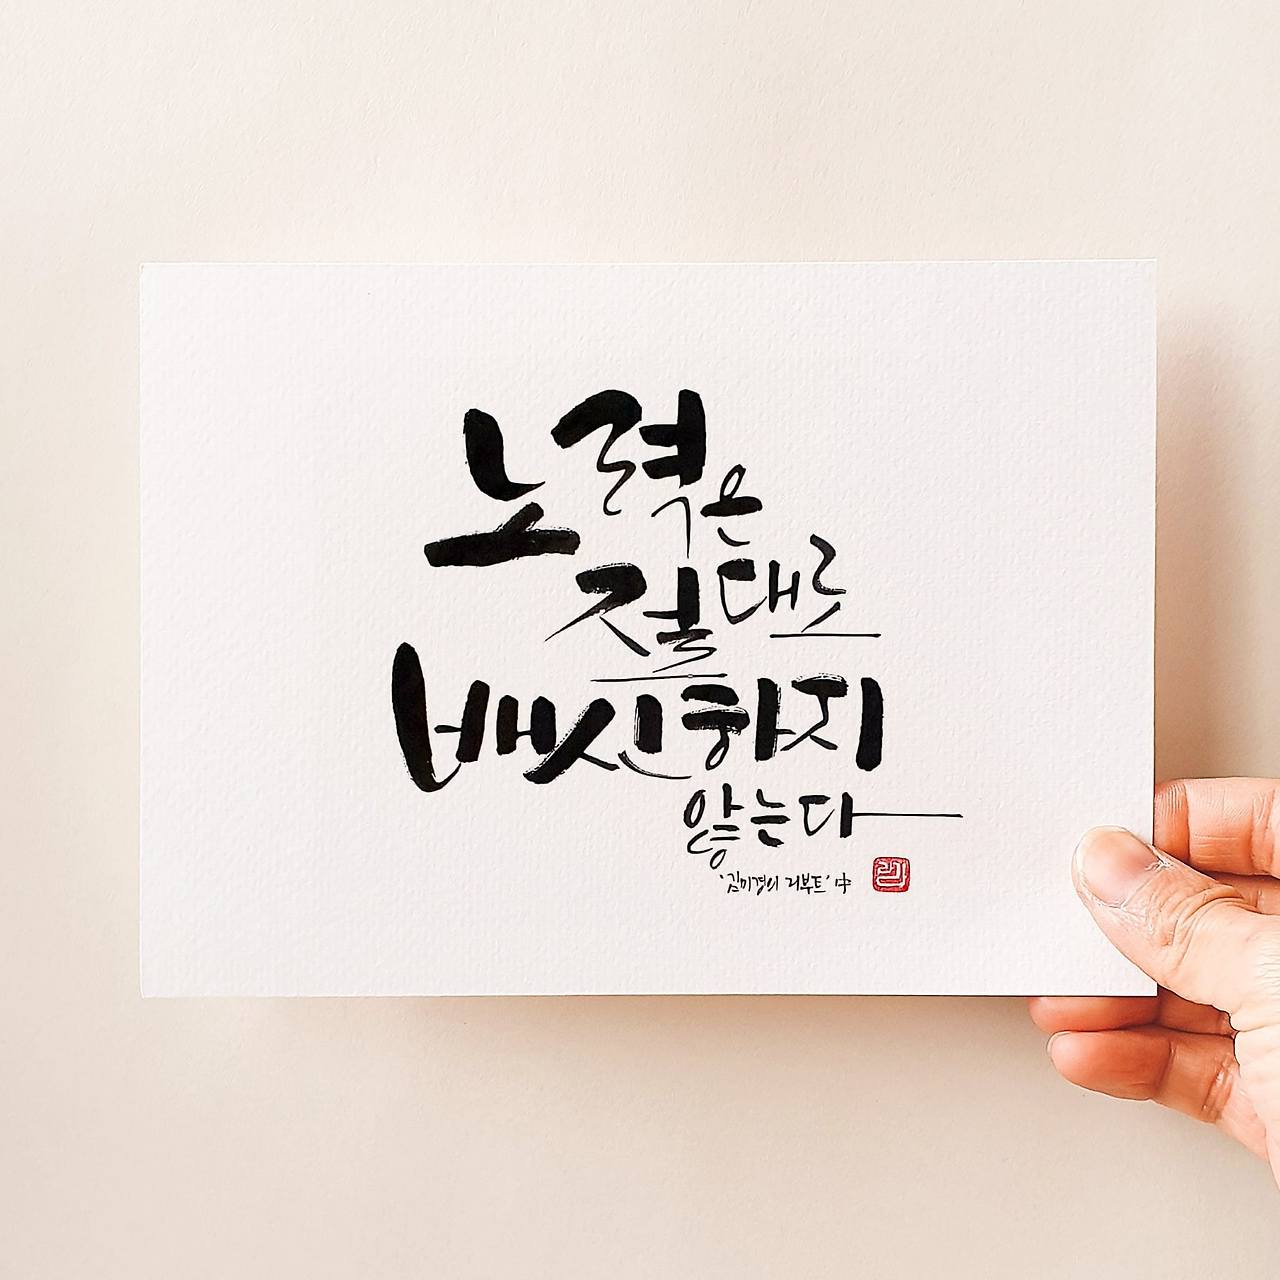 노력은
절대로
배신하지
않는다
'김미경의 리부트' 中